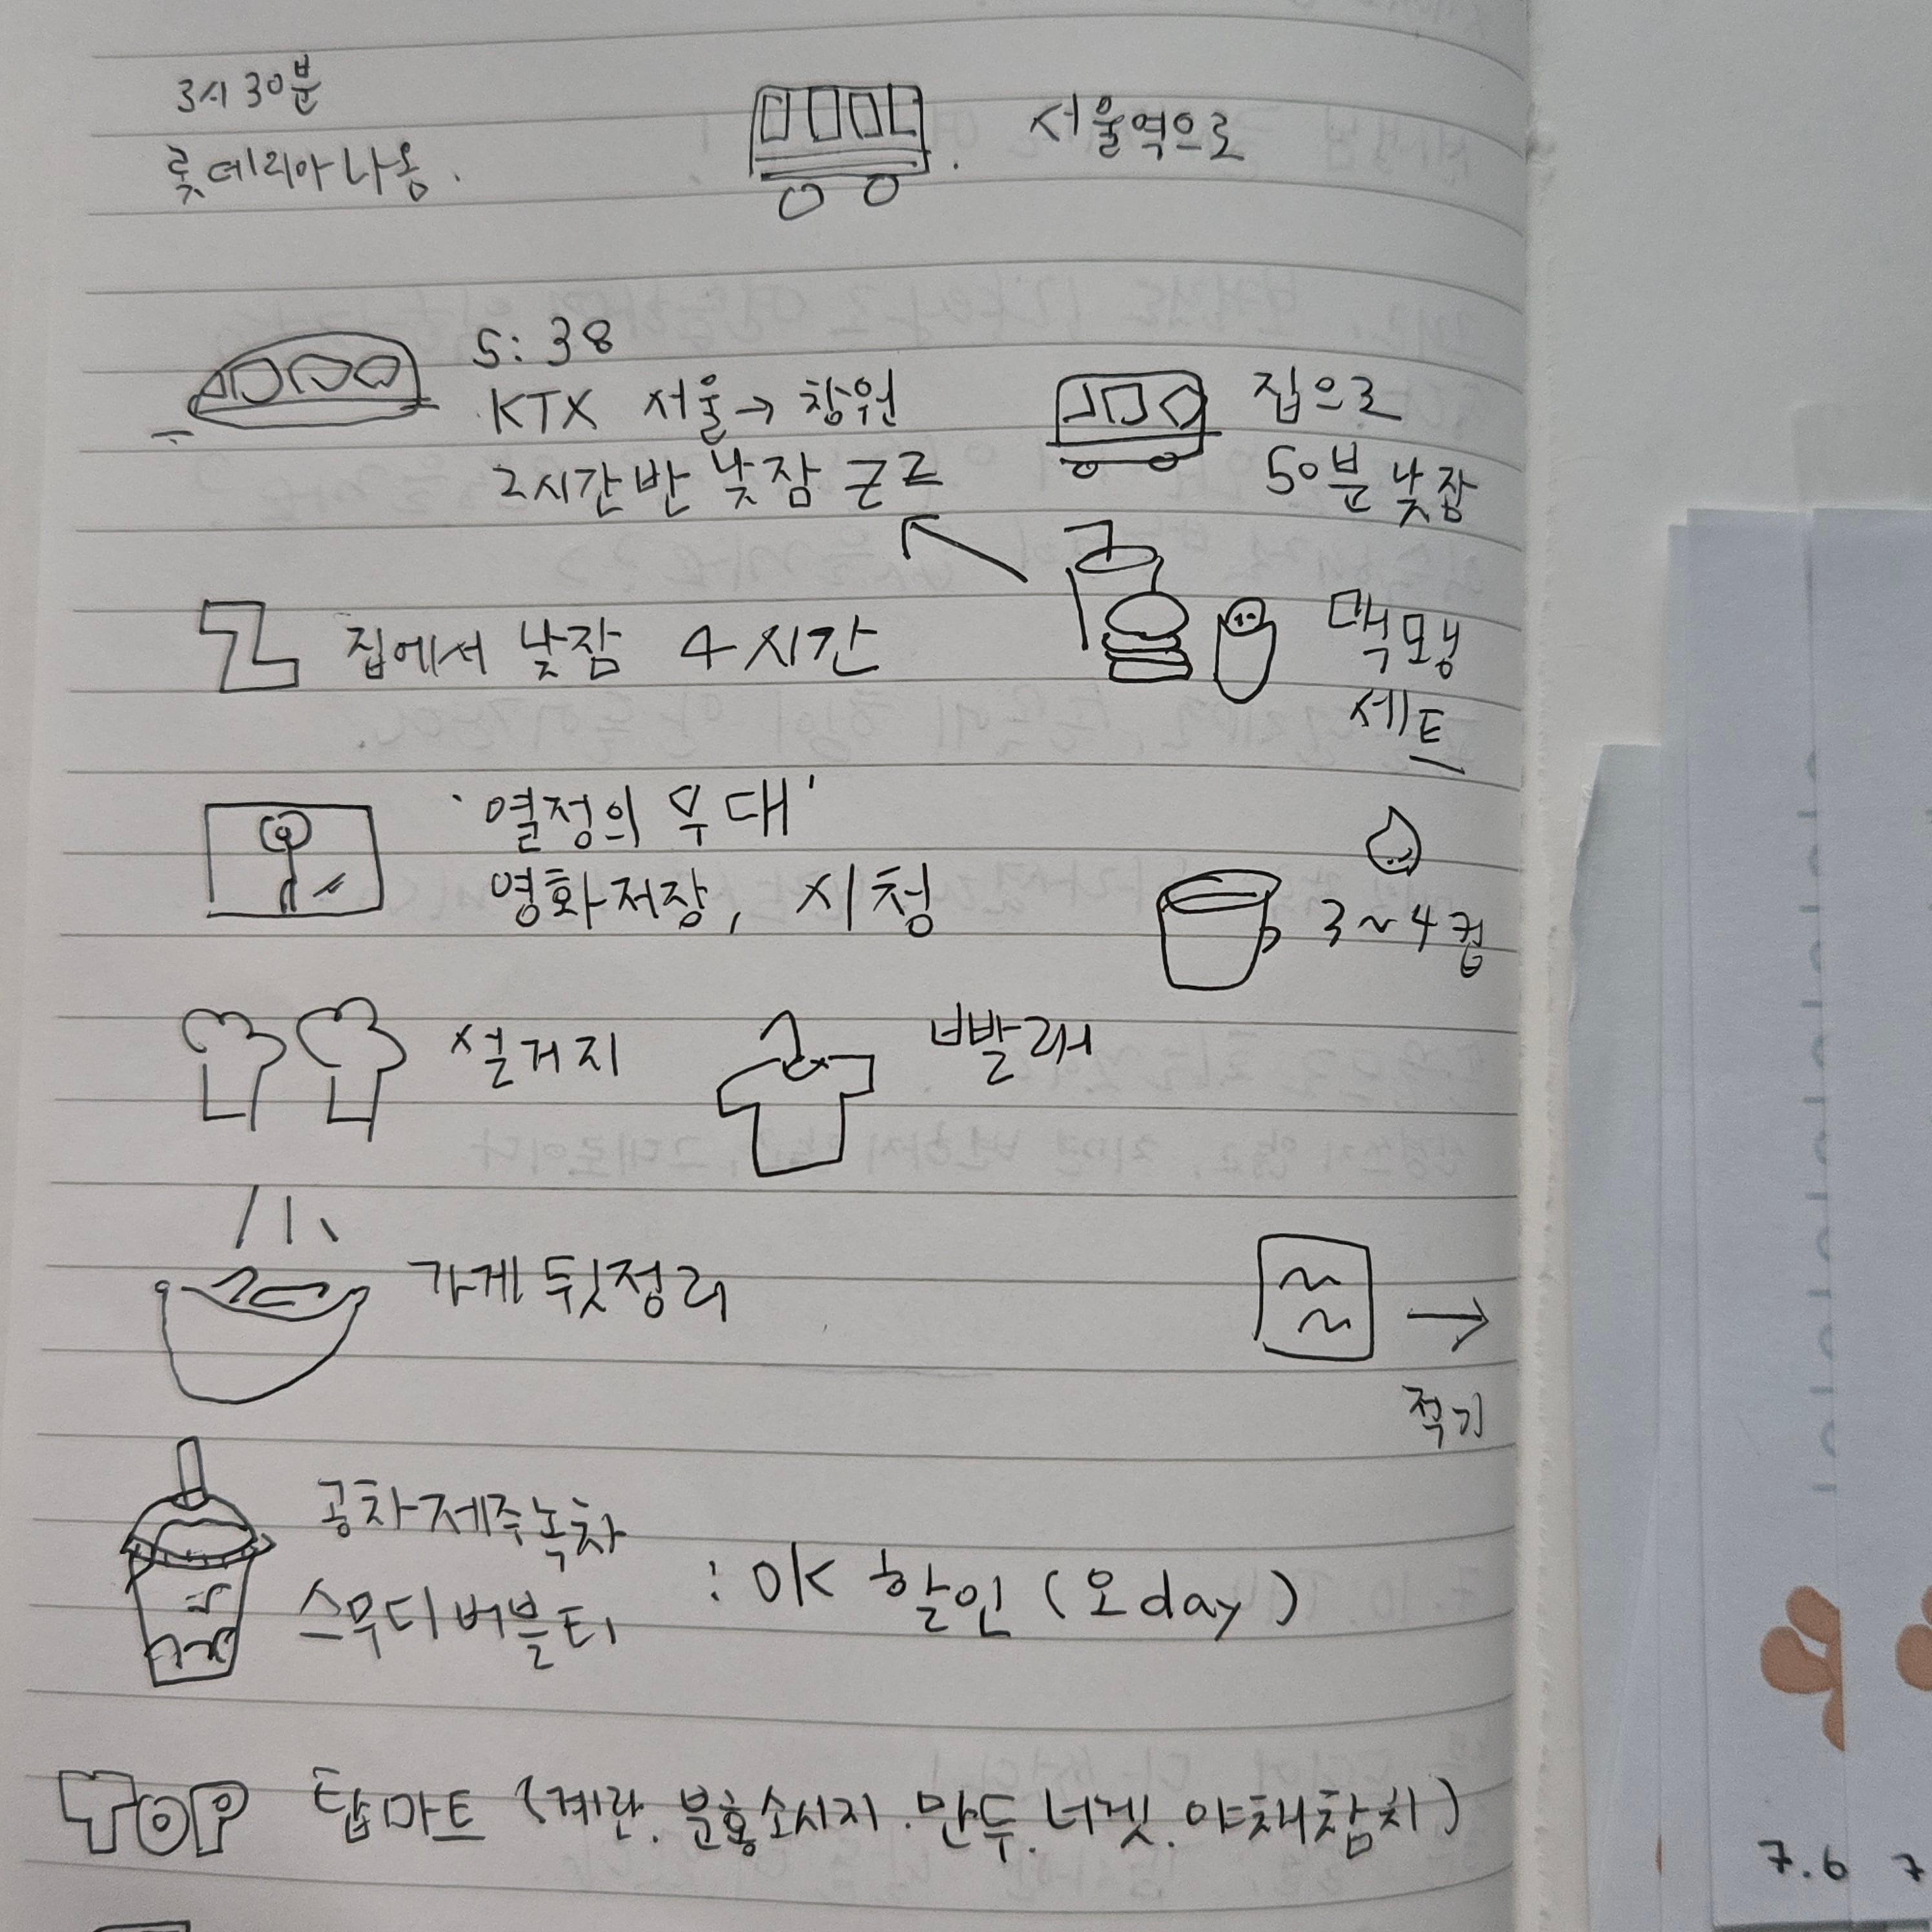 3시 30분
롯데리아 나옴.
서울역으로
5:38
KTX 서울→창원
2시간반 낮잠 ㄷㄷ
집으로
50분 낮잠
집에서 낮잠 4시간
맥모닝
세트
'열정의 무대'
영화저장, 시청
3~4컵
설거지
빨래
가게 뒷정리
적기
공차 제주녹차
스무디 버블티
: OK 할인 (오day)
TOP 탑마트 (계란. 분홍소시지. 만두. 너겟. 야채참치)
7.6 7